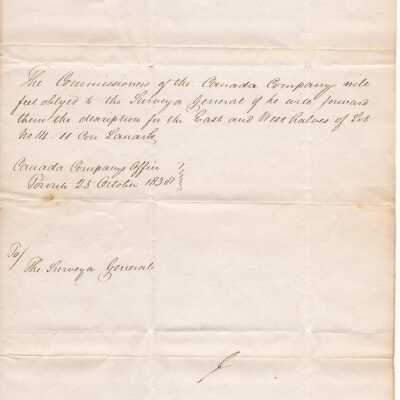 The Commissioners of the Canada Company will
feel obliged to the Surveyor General if he will forward
them the description for the East and West Halves of Lot
No 14 - 11 Con Lanark
Canada Companys Office
Toronto 23 October 1838
To/
The Surveyor General